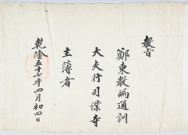 教旨
鄭東教爲通訓
大夫行司僕寺
主簿者
乾隆五十七年四月初四日